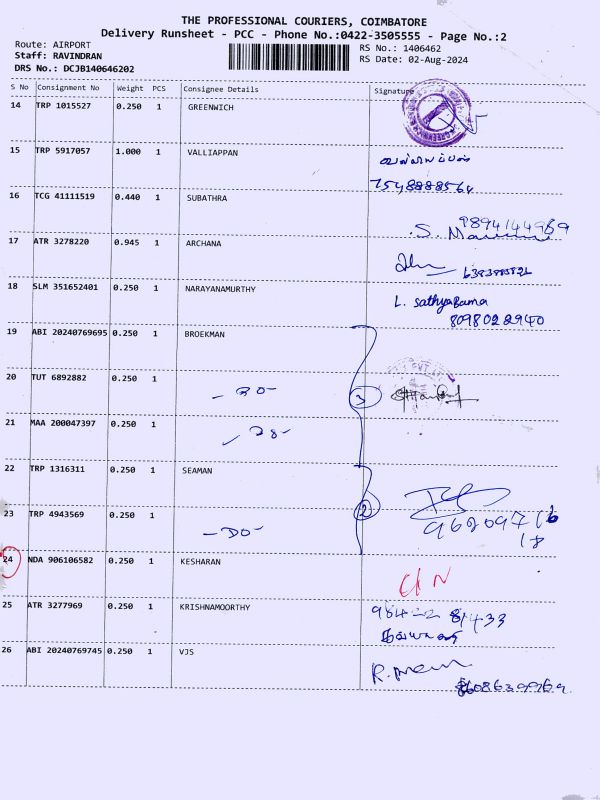 THE PROFESSIONAL COURIERS, COIMBATORE
Delivery Runsheet - PCC - Phone No.:0422-3505555 - Page No.:2
Route: AIRPORT
Staff: RAVINDRAN
DRS No.: DCJB140646202
RS No.: 1406462
RS Date: 02-Aug-2024
S No Consignment No Weight PCS Consignee Details Signature
14 TRP 1015527 0.250 1 GREENWICH
15 TRP 5917057 1.000 1 VALLIAPPAN
வள்ளியப்பன்
7548888564
16 TCG 41111519 0.440 1 SUBATHRA
9894144969
S.
17 ATR 3278220 0.945 1 ARCHANA
18 SLM 351652401 0.250 1 NARAYANAMURTHY
L. Sathyabama
8098028940
19 ABI 20240769695 0.250 1 BROEKMAN
20 TUT 6892882 0.250 1
- DO -
3
21 MAA 200047397 0.250 1
22 TRP 1316311 0.250 1 SEAMAN
2
23 TRP 4943569 0.250 1
- DO -
96209716
18
24 NDA 906106582 0.250 1 KESHARAN
25 ATR 3277969 0.250 1 KRISHNAMOORTHY
98422 81433
26 ABI 20240769745 0.250 1 VJS
R.